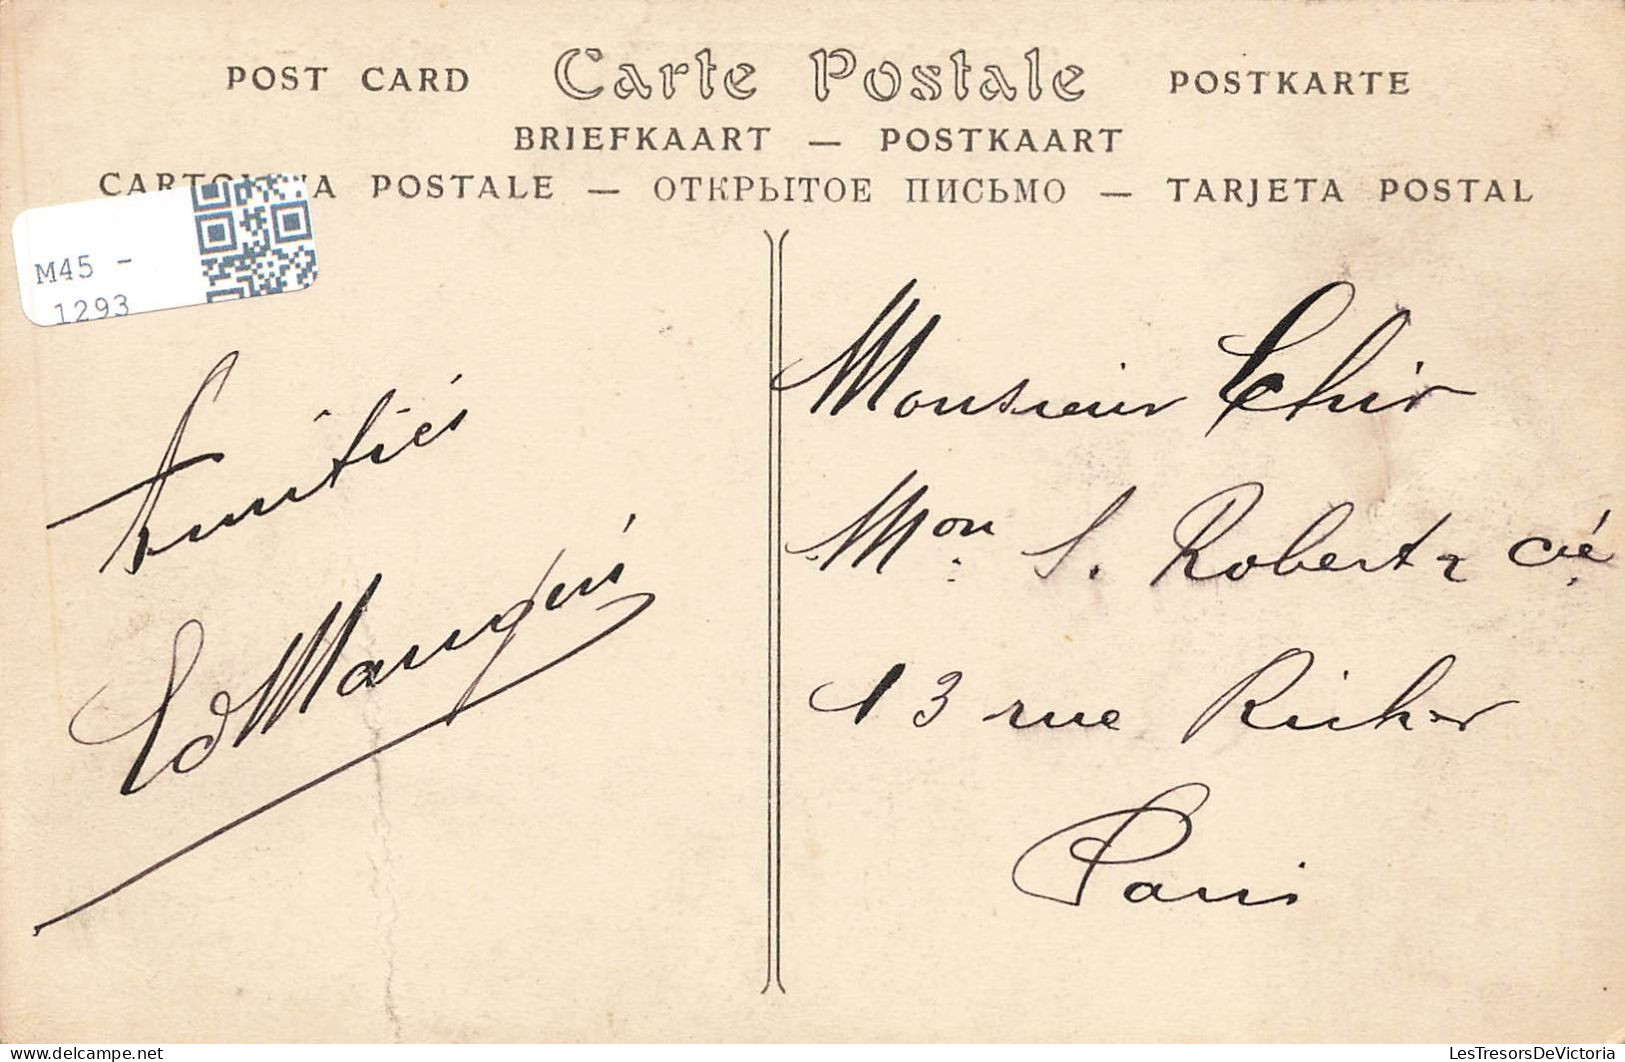 POST CARD Carte Postale POSTKARTE
BRIEFKAART — POSTKAART
POSTALE — ОТКРЫТОЕ ПИСЬМО — TARJETA POSTAL
M45 -
1293
Amitiés
Monsieur Thir
Mon S. Robert & Cie
13 rue Richer
Paris
LesTresorsDeVictoria
delcampe.net